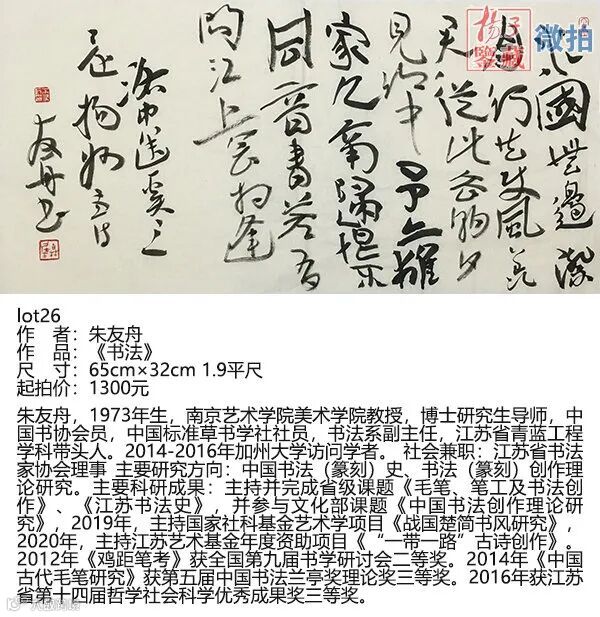 水國無邊際
舟行共使風羡
君從此去朝夕
見鄉中予亦離
家久南歸恨不
同音書若有
問江上会相逢
洛中送奚三
还揚州
友舟书
揚子鑒藏
微拍
lot26
作 者：朱友舟
作 品：《书法》
尺 寸：65cm×32cm 1.9平尺
起拍价：1300元
朱友舟，1973年生，南京艺术学院美术学院教授，博士研究生导师，中
国书协会员，中国标准草书学社社员，书法系副主任，江苏省青蓝工程
学科带头人。2014-2016年加州大学访问学者。 社会兼职：江苏省书法
家协会理事 主要研究方向：中国书法（篆刻）史、书法（篆刻）创作理
论研究。主要科研成果：主持并完成省级课题《毛笔、笔工及书法创
作》、《江苏书法史》，并参与文化部课题《中国书法创作理论研
究》，2019年，主持国家社科基金艺术学项目《战国楚简书风研究》，
2020年，主持江苏艺术基金年度资助项目《“一带一路”古诗创作》。
2012年《鸡距笔考》获全国第九届书学研讨会二等奖。2014年《中国
古代毛笔研究》获第五届中国书法兰亭奖理论奖三等奖。2016年获江苏
省第十四届哲学社会科学优秀成果奖三等奖。